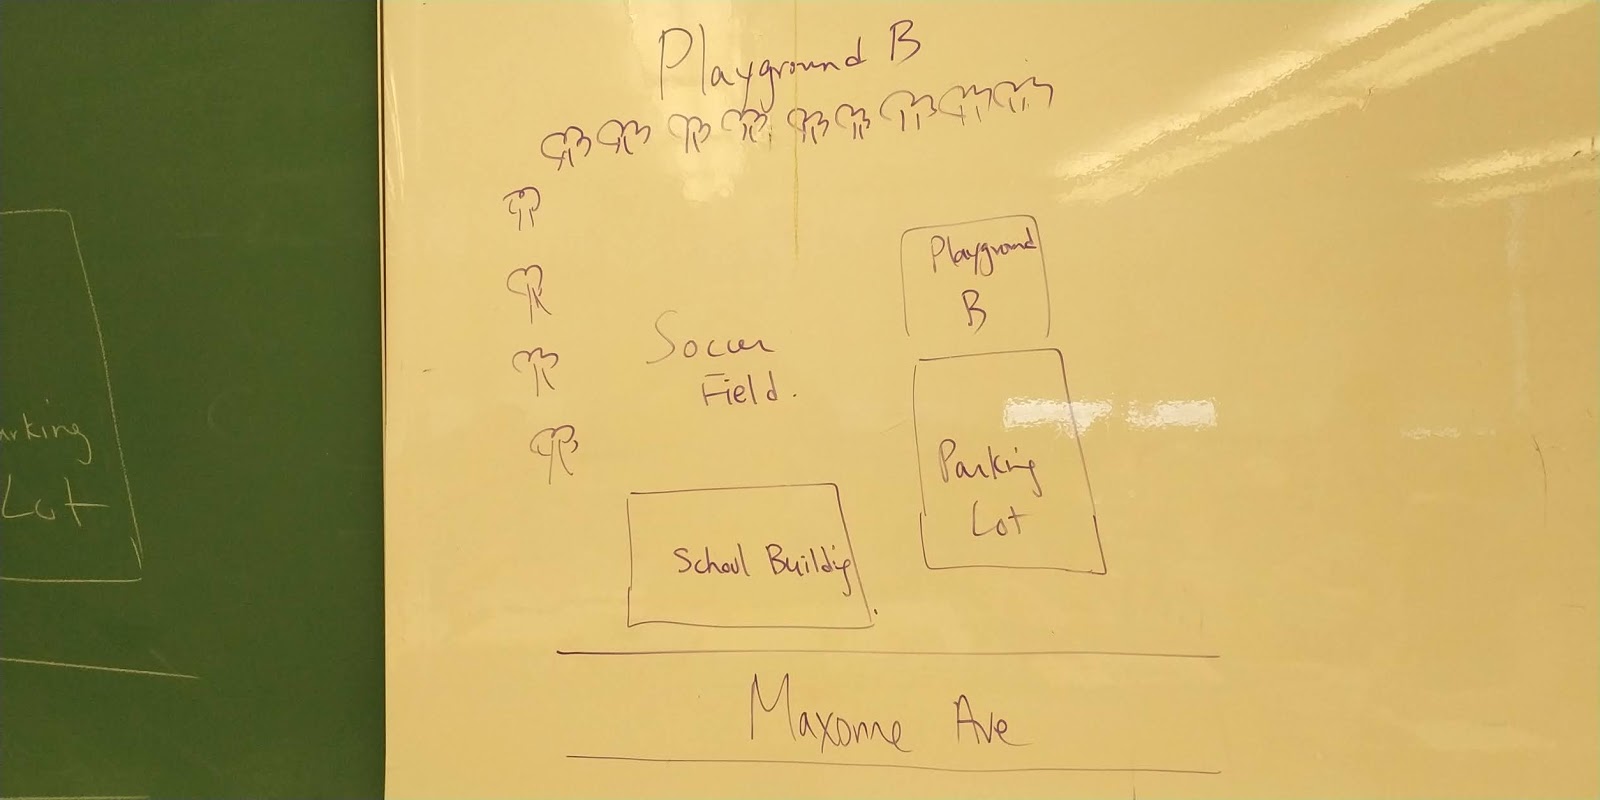 Playground B
Playground
B
Soccer
Field.
Parking
Lot
School Building
Maxome Ave
arking
Lot